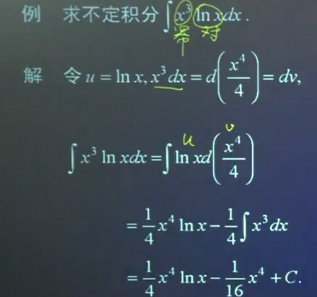 例 求不定积分∫x³ ln xdx.
幂 对
解 令u = ln x, x³dx = d(x⁴/4) = dv,
u v
∫x³ ln xdx = ∫ln xd(x⁴/4)
= 1/4 x⁴ ln x − 1/4 ∫x³dx
= 1/4 x⁴ ln x − 1/16 x⁴ + C.